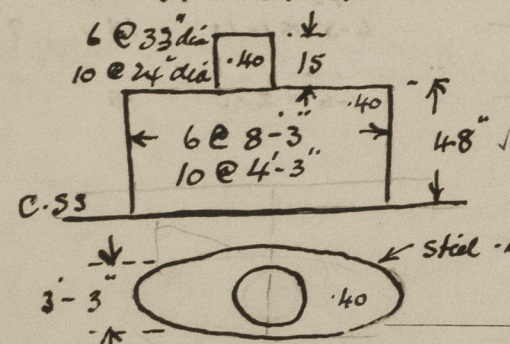 6 @ 33" dia
10 @ 24" dia
.40
15
.40
6 @ 8'-3"
10 @ 4'-3"
48"
C.SS
Steel
3'-3"
.40